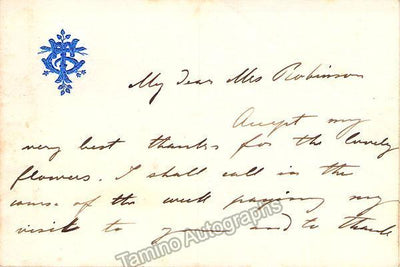 My dear Mrs Robinson
Accept my
very best thanks for the lovely
flowers. I shall call in the
course of the week paying my
visit to you and to thank
Tamino Autographs